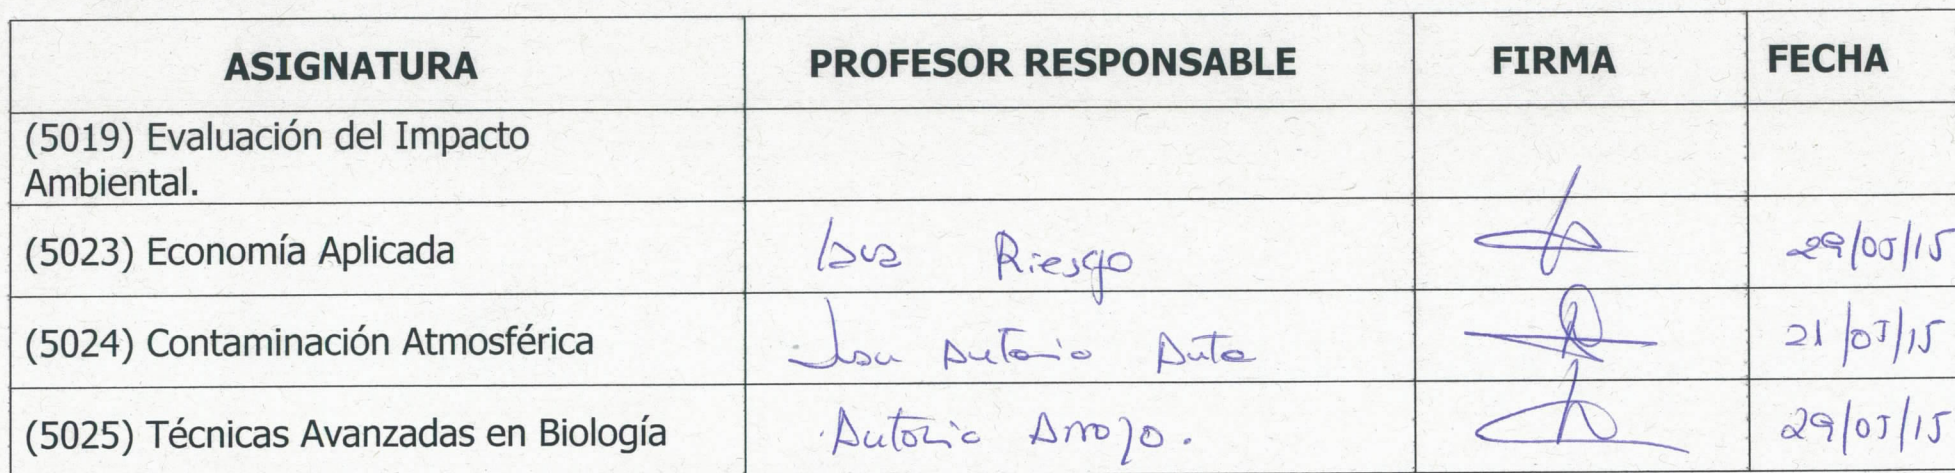 ASIGNATURA PROFESOR RESPONSABLE FIRMA FECHA
(5019) Evaluación del Impacto
Ambiental.
(5023) Economía Aplicada Riesgo 29/05/15
(5024) Contaminación Atmosférica Antonio 21/05/15
(5025) Técnicas Avanzadas en Biología Antonio Arroyo. 29/05/15